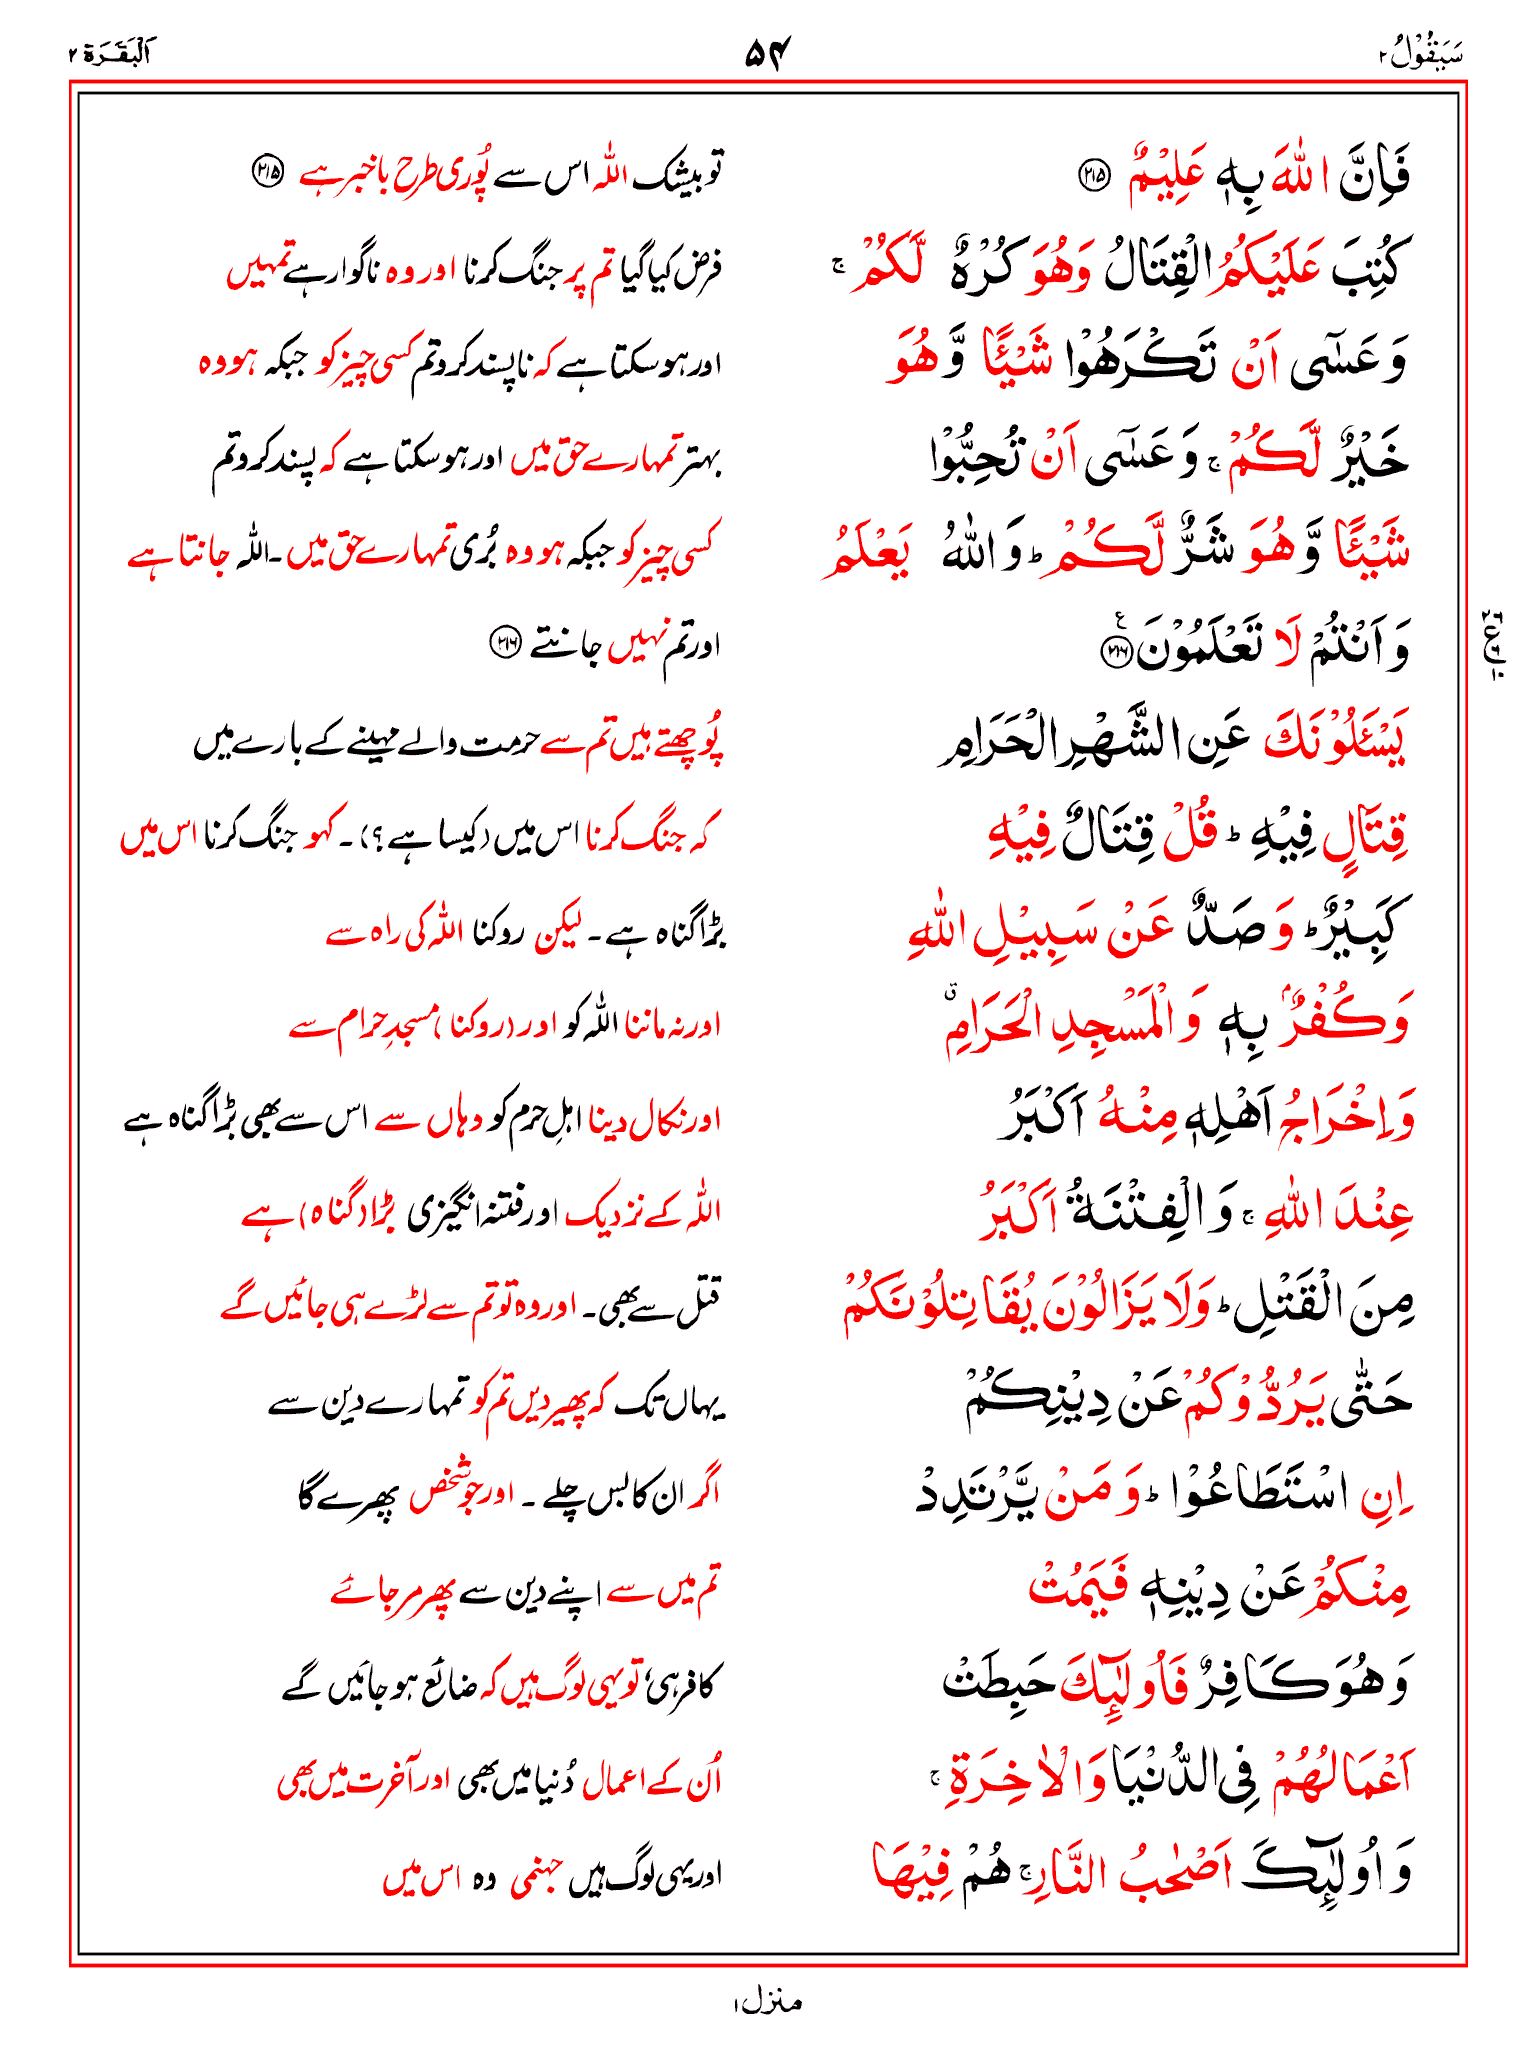 سَيَقُوْلُ ۲ ۵۴ اَلْبَقَرَة ۲
فَاِنَّ اللّٰهَ بِهٖ عَلِيْمٌ ﴿۲۱۵﴾ تو بیشک اللّٰہ اس سے پُوری طرح باخبر ہے ﴿۲۱۵﴾
كُتِبَ عَلَيْكُمُ الْقِتَالُ وَهُوَ كُرْهٌ لَّكُمْ ۚ فرض کیا گیا تم پر جنگ کرنا اور وہ ناگوار ہے تمہیں
وَعَسٰٓى اَنْ تَكْرَهُوْا شَيْـًٔا وَّهُوَ اور ہو سکتا ہے کہ ناپسند کرو تم کسی چیز کو جبکہ ہو وہ
خَيْرٌ لَّكُمْ ۚ وَعَسٰٓى اَنْ تُحِبُّوْا بہتر تمہارے حق میں اور ہو سکتا ہے کہ پسند کرو تم
شَيْـًٔا وَّهُوَ شَرٌّ لَّكُمْ ؕ وَاللّٰهُ يَعْلَمُ کسی چیز کو جبکہ ہو وہ بُری تمہارے حق میں ۔ اللّٰہ جانتا ہے
وَاَنْتُمْ لَا تَعْلَمُوْنَ ﴿۲۱۶﴾ ع اور تم نہیں جانتے ﴿۲۱۶﴾
يَسْـَٔلُوْنَكَ عَنِ الشَّهْرِ الْحَرَامِ پُوچھتے ہیں تم سے حرمت والے مہینے کے بارے میں
قِتَالٍ فِيْهِ ؕ قُلْ قِتَالٌ فِيْهِ کہ جنگ کرنا اس میں (کیسا ہے؟) ۔ کہو جنگ کرنا اس میں
كَبِيْرٌ ؕ وَصَدٌّ عَنْ سَبِيْلِ اللّٰهِ بڑا گناہ ہے ۔ لیکن روکنا اللّٰہ کی راہ سے
وَكُفْرٌۢ بِهٖ وَالْمَسْجِدِ الْحَرَامِ ۗ اور نہ ماننا اللّٰہ کو اور (روکنا) مسجدِ حرام سے
وَاِخْرَاجُ اَهْلِهٖ مِنْهُ اَكْبَرُ اور نکال دینا اہلِ حرم کو وہاں سے اس سے بھی بڑا گناہ ہے
عِنْدَ اللّٰهِ ۚ وَالْفِتْنَةُ اَكْبَرُ اللّٰہ کے نزدیک اور فتنہ انگیزی بڑا (گناہ) ہے
مِنَ الْقَتْلِ ؕ وَلَا يَزَالُوْنَ يُقَاتِلُوْنَكُمْ قتل سے بھی ۔ اور وہ تو تم سے لڑے ہی جائیں گے
حَتّٰى يَرُدُّوْكُمْ عَنْ دِيْنِكُمْ یہاں تک کہ پھیر دیں تم کو تمہارے دین سے
اِنِ اسْتَطَاعُوْا ؕ وَمَنْ يَّرْتَدِدْ اگر ان کا بس چلے ۔ اور جو شخص پھرے گا
مِنْكُمْ عَنْ دِيْنِهٖ فَيَمُتْ تم میں سے اپنے دین سے پھر مر جائے
وَهُوَ كَافِرٌ فَاُولٰٓئِكَ حَبِطَتْ کافر ہی، تو یہی لوگ ہیں کہ ضائع ہو جائیں گے
اَعْمَالُهُمْ فِى الدُّنْيَا وَالْاٰخِرَةِ ۚ اُن کے اعمال دُنیا میں بھی اور آخرت میں بھی
وَاُولٰٓئِكَ اَصْحٰبُ النَّارِ ۚ هُمْ فِيْهَا اور یہی لوگ ہیں جہنمی وہ اس میں
منزل ۱